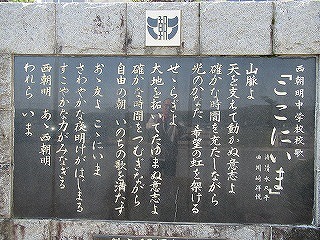 朝明
西朝明中学校校歌
「ここにいま」
山脈よ
天を支えて動かぬ意志よ
確かな時間を充たしながら
光のかなた 希望の虹を架ける
せゝらぎよ
大地を拓いてたゆまぬ意志よ
確かな時間をつむぎながら
自由の朝 いのちの歌を満たす
おゝ友よ こゝにいま
さわやかな夜明けがはじまる
すこやかな力がみなぎる
西朝明 あゝ西朝明
われら いま